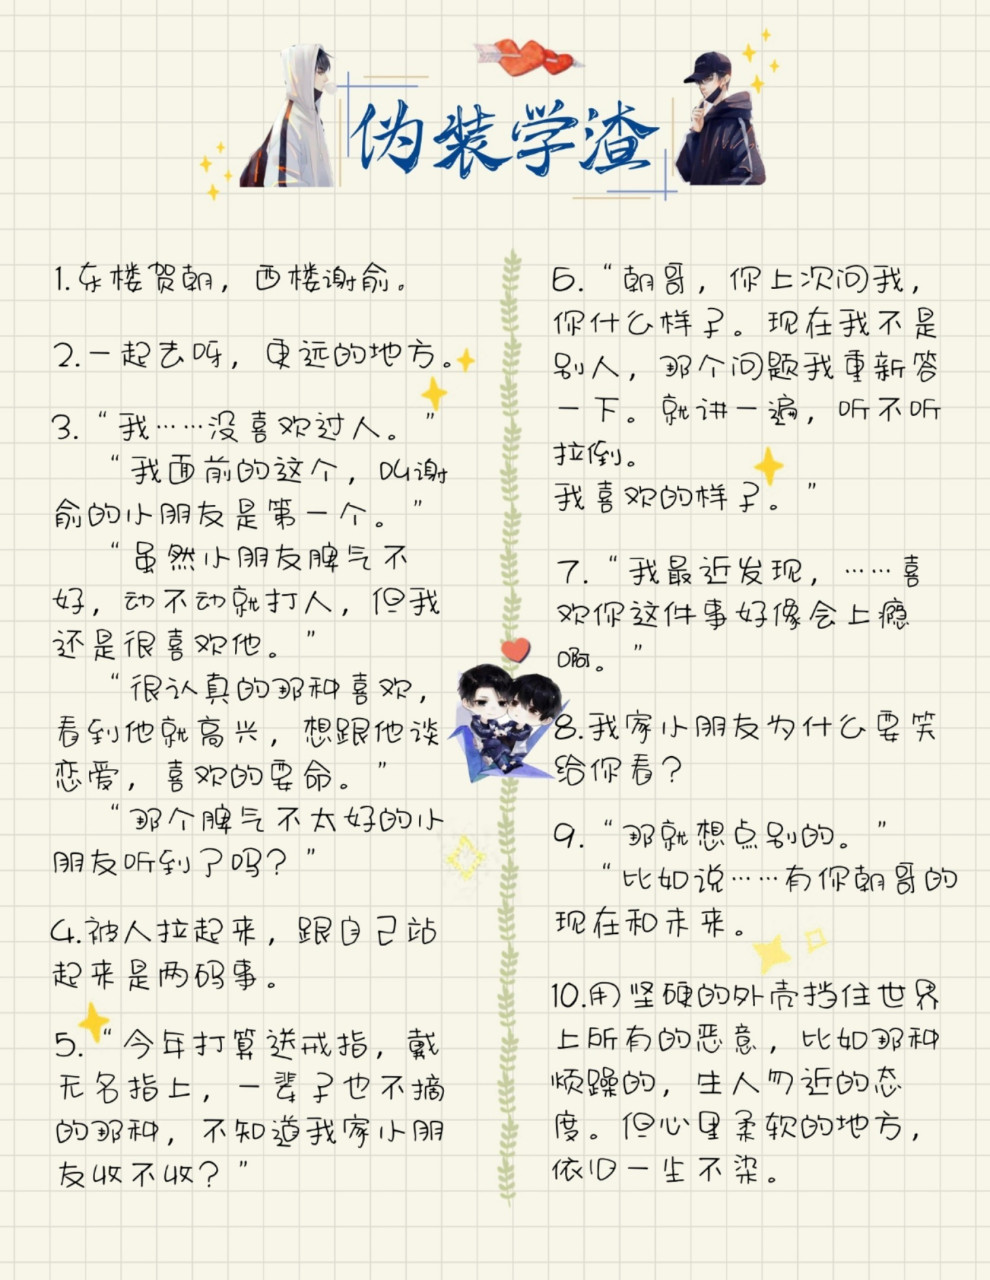 伪装学渣
1.东楼贺朝，西楼谢俞。
2.一起去呀，更远的地方。
3.“我……没喜欢过人。”
“我面前的这个，叫谢
俞的小朋友是第一个。”
“虽然小朋友脾气不
好，动不动就打人，但我
还是很喜欢他。”
“很认真的那种喜欢，
看到他就高兴，想跟他谈
恋爱，喜欢的要命。”
“那个脾气不太好的小
朋友听到了吗？”
4.被人拉起来，跟自己站
起来是两码事。
5.“今年打算送戒指，戴
无名指上，一辈子也不摘
的那种，不知道我家小朋
友收不收？”
6.“朝哥，你上次问我，
你什么样子。现在我不是
别人，那个问题我重新答
一下。就讲一遍，听不听
拉倒。
我喜欢的样子。”
7.“我最近发现，……喜
欢你这件事好像会上瘾
啊。”
8.我家小朋友为什么要笑
给你看？
9.“那就想点别的。”
“比如说……有你朝哥的
现在和未来。
10.用坚硬的外壳挡住世界
上所有的恶意，比如那种
烦躁的，生人勿近的态
度。但心里柔软的地方，
依旧一尘不染。